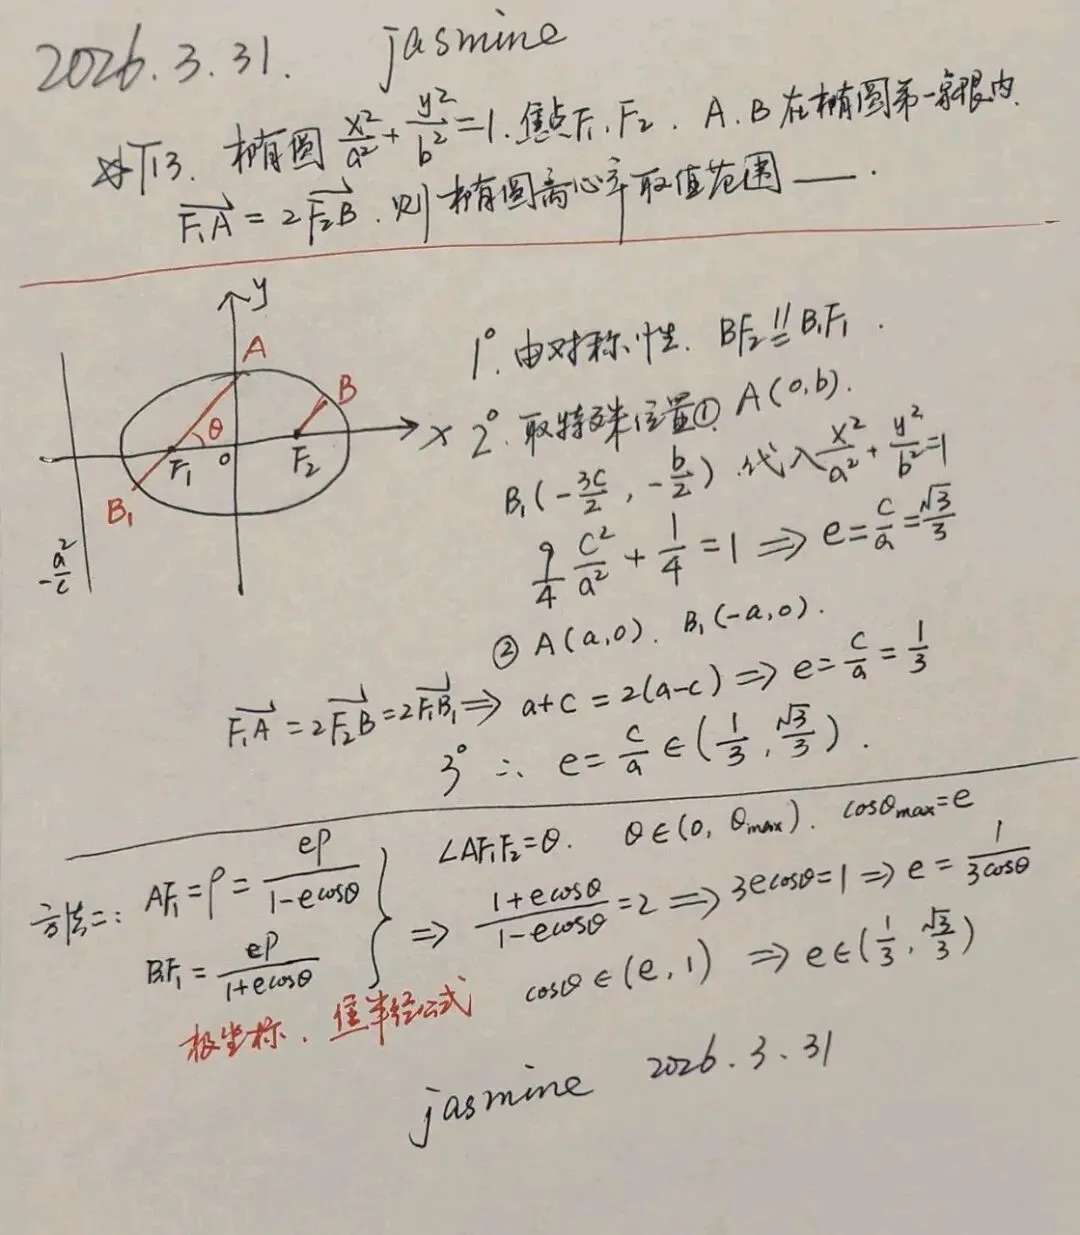 2026.3.31. jasmine
☆T13. 椭圆 x²/a² + y²/b² = 1. 焦点F₁、F₂. A、B在椭圆第一象限内.
F₁A = 2F₂B. 则椭圆离心率取值范围 ___.
y
A
B
θ
x
F₁
O
F₂
B₁
-a²/c
1°. 由对称性. BF₂ ∥= B₁F₁.
2°. 取特殊位置① A(0,b).
B₁(-3c/2, -b/2). 代入 x²/a² + y²/b² = 1
9/4 c²/a² + 1/4 = 1 ⇒ e = c/a = √3/3
② A(a,0). B₁(-a,0).
F₁A = 2F₂B = 2F₁B₁ ⇒ a+c = 2(a-c) ⇒ e = c/a = 1/3
3° ∴ e = c/a ∈ (1/3, √3/3).
方法二: AF₁ = ρ = ep/(1-ecosθ)
B₁F₁ = ep/(1+ecosθ)
∠AF₁F₂=θ. θ∈(0, θmax). cosθmax=e
⇒ (1+ecosθ)/(1-ecosθ) = 2 ⇒ 3ecosθ=1 ⇒ e = 1/(3cosθ)
cosθ∈(e,1) ⇒ e∈(1/3, √3/3)
极坐标. 焦半径公式
jasmine 2026.3.31